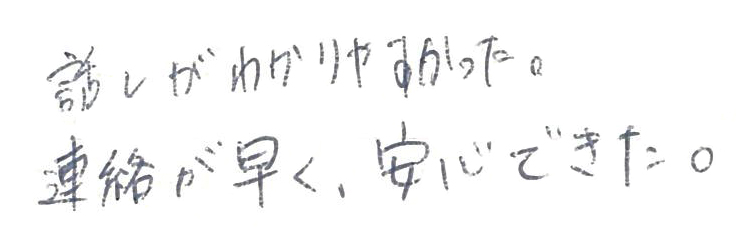 話しがわかりやすかった。
連絡が早く、安心できた。